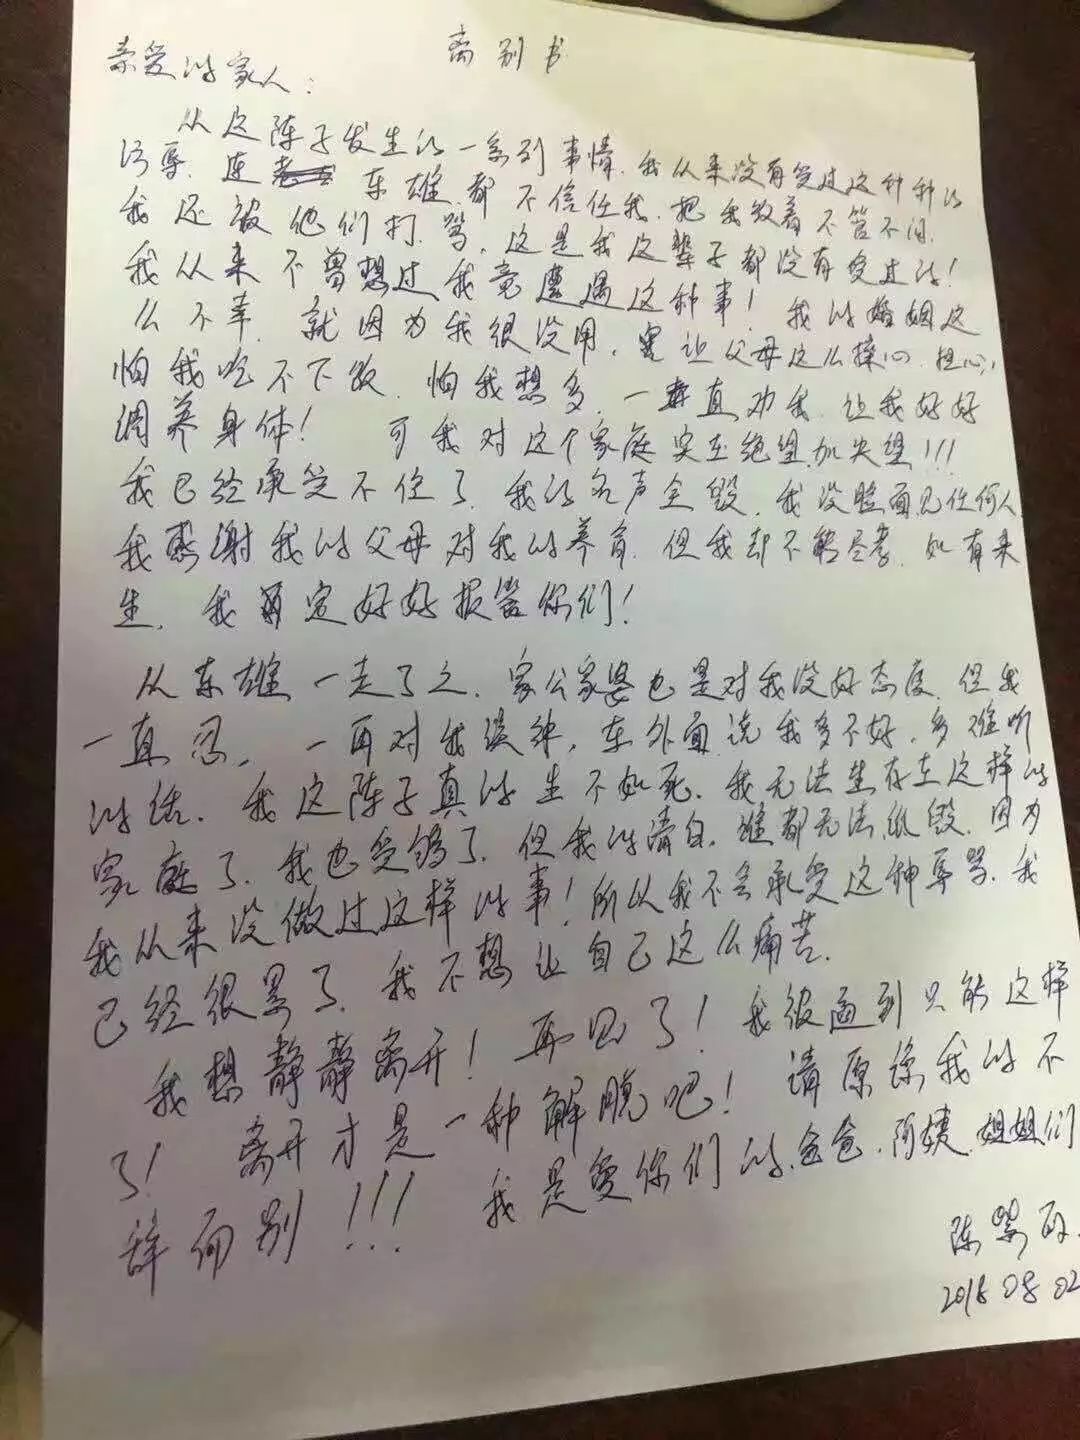 离别书
亲爱的家人：
从这阵子发生的一系列事情，我从来没有受过这种种的
污辱，连 东雄都不信任我，把我放着不管不问，
我还被他们打，骂，这是我这辈子都没有受过的！
我从来不曾想过我竟遭遇这种事！我的婚姻这
么不幸，就因为我很没用，害让父母这么操心，担心，
怕我吃不下饭，怕我想多，一直劝我，让我好好
调养身体！可我对这个家庭实在绝望加失望！！！
我已经承受不住了，我的名声全毁，我没脸面见任何人
我感谢我的父母对我的养育，但我却不能尽孝，如有来
生，我再定好好报答你们！
从东雄一走了之，家公家婆也是对我没好态度，但我
一直忍，一再对我误钟，在外面说我多不好，多难听
的话，我这阵子真的生不如死，我无法生存在这样的
家庭了，我也受够了，但我的清白，谁都无法诋毁，因为
我从来没做过这样的事！所以我不会承受这种辱骂，我
已经很累了，我不想让自己这么痛苦，
我想静静离开！再见了！我被逼到只能这样
了！离开才是一种解脱吧！请原谅我的不
辞而别！！！我是爱你们的，爸爸，阿姨，姐姐们
陈
2018 08 02